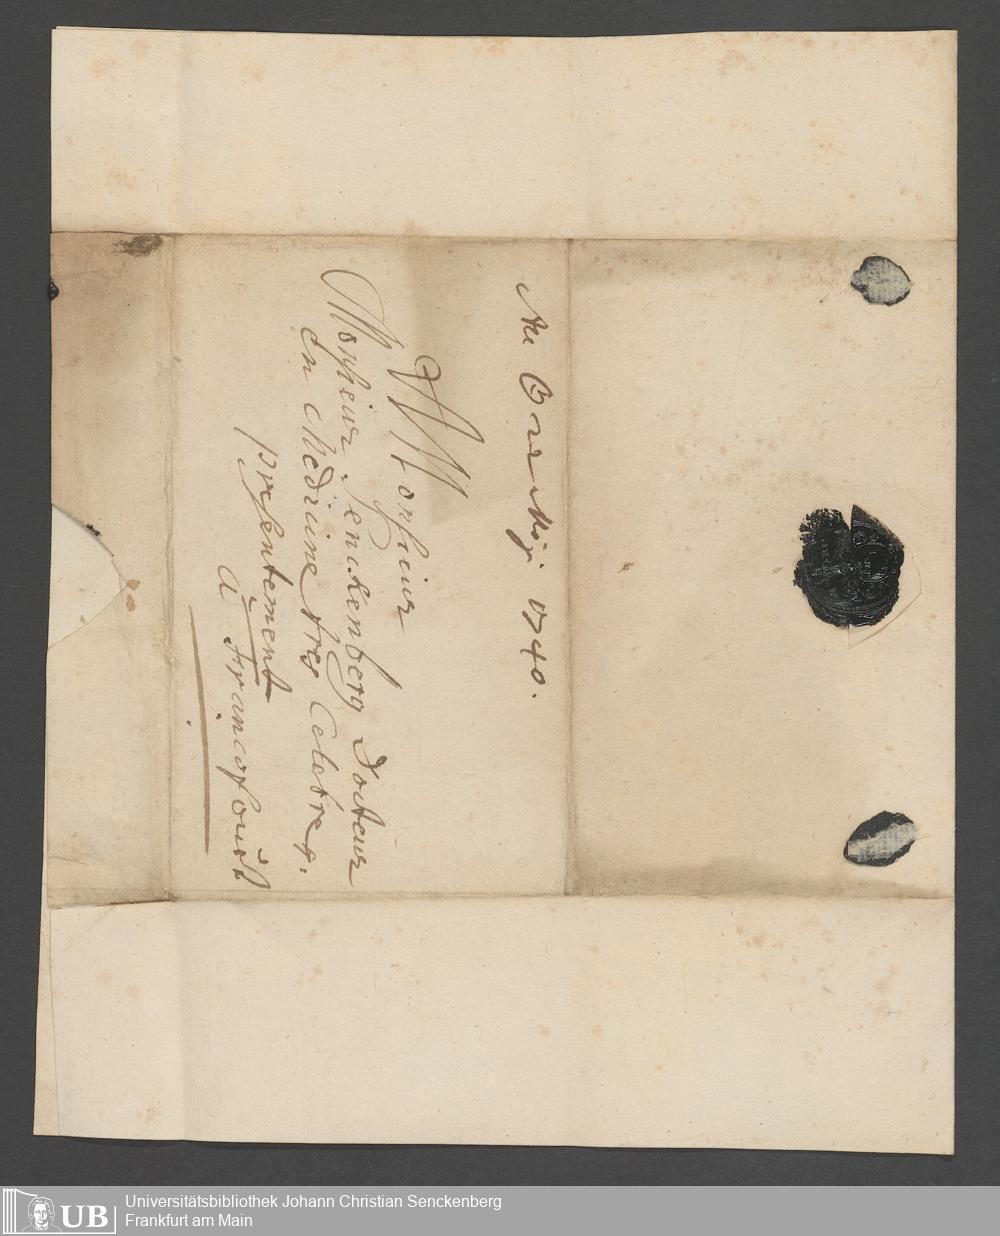 1740.
Monsieur
Monsieur Senckenberg Docteur
en Medicine tres Celebre.
presentement
a Francofourt
UB
Universitätsbibliothek Johann Christian Senckenberg
Frankfurt am Main